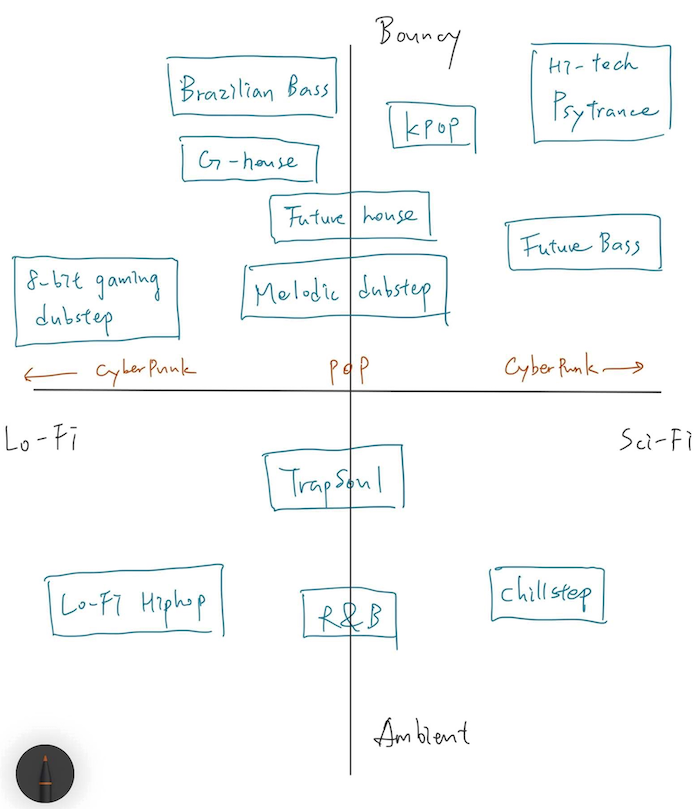 Bouncy
Brazilian Bass
Hi-tech
Psytrance
KPOP
G-house
Future house
Future Bass
8-bit gaming
dubstep
Melodic dubstep
← CyberPunk
POP
CyberPunk →
Lo-Fi
Sci-Fi
TrapSoul
Lo-Fi Hiphop
R&B
chillstep
Ambient